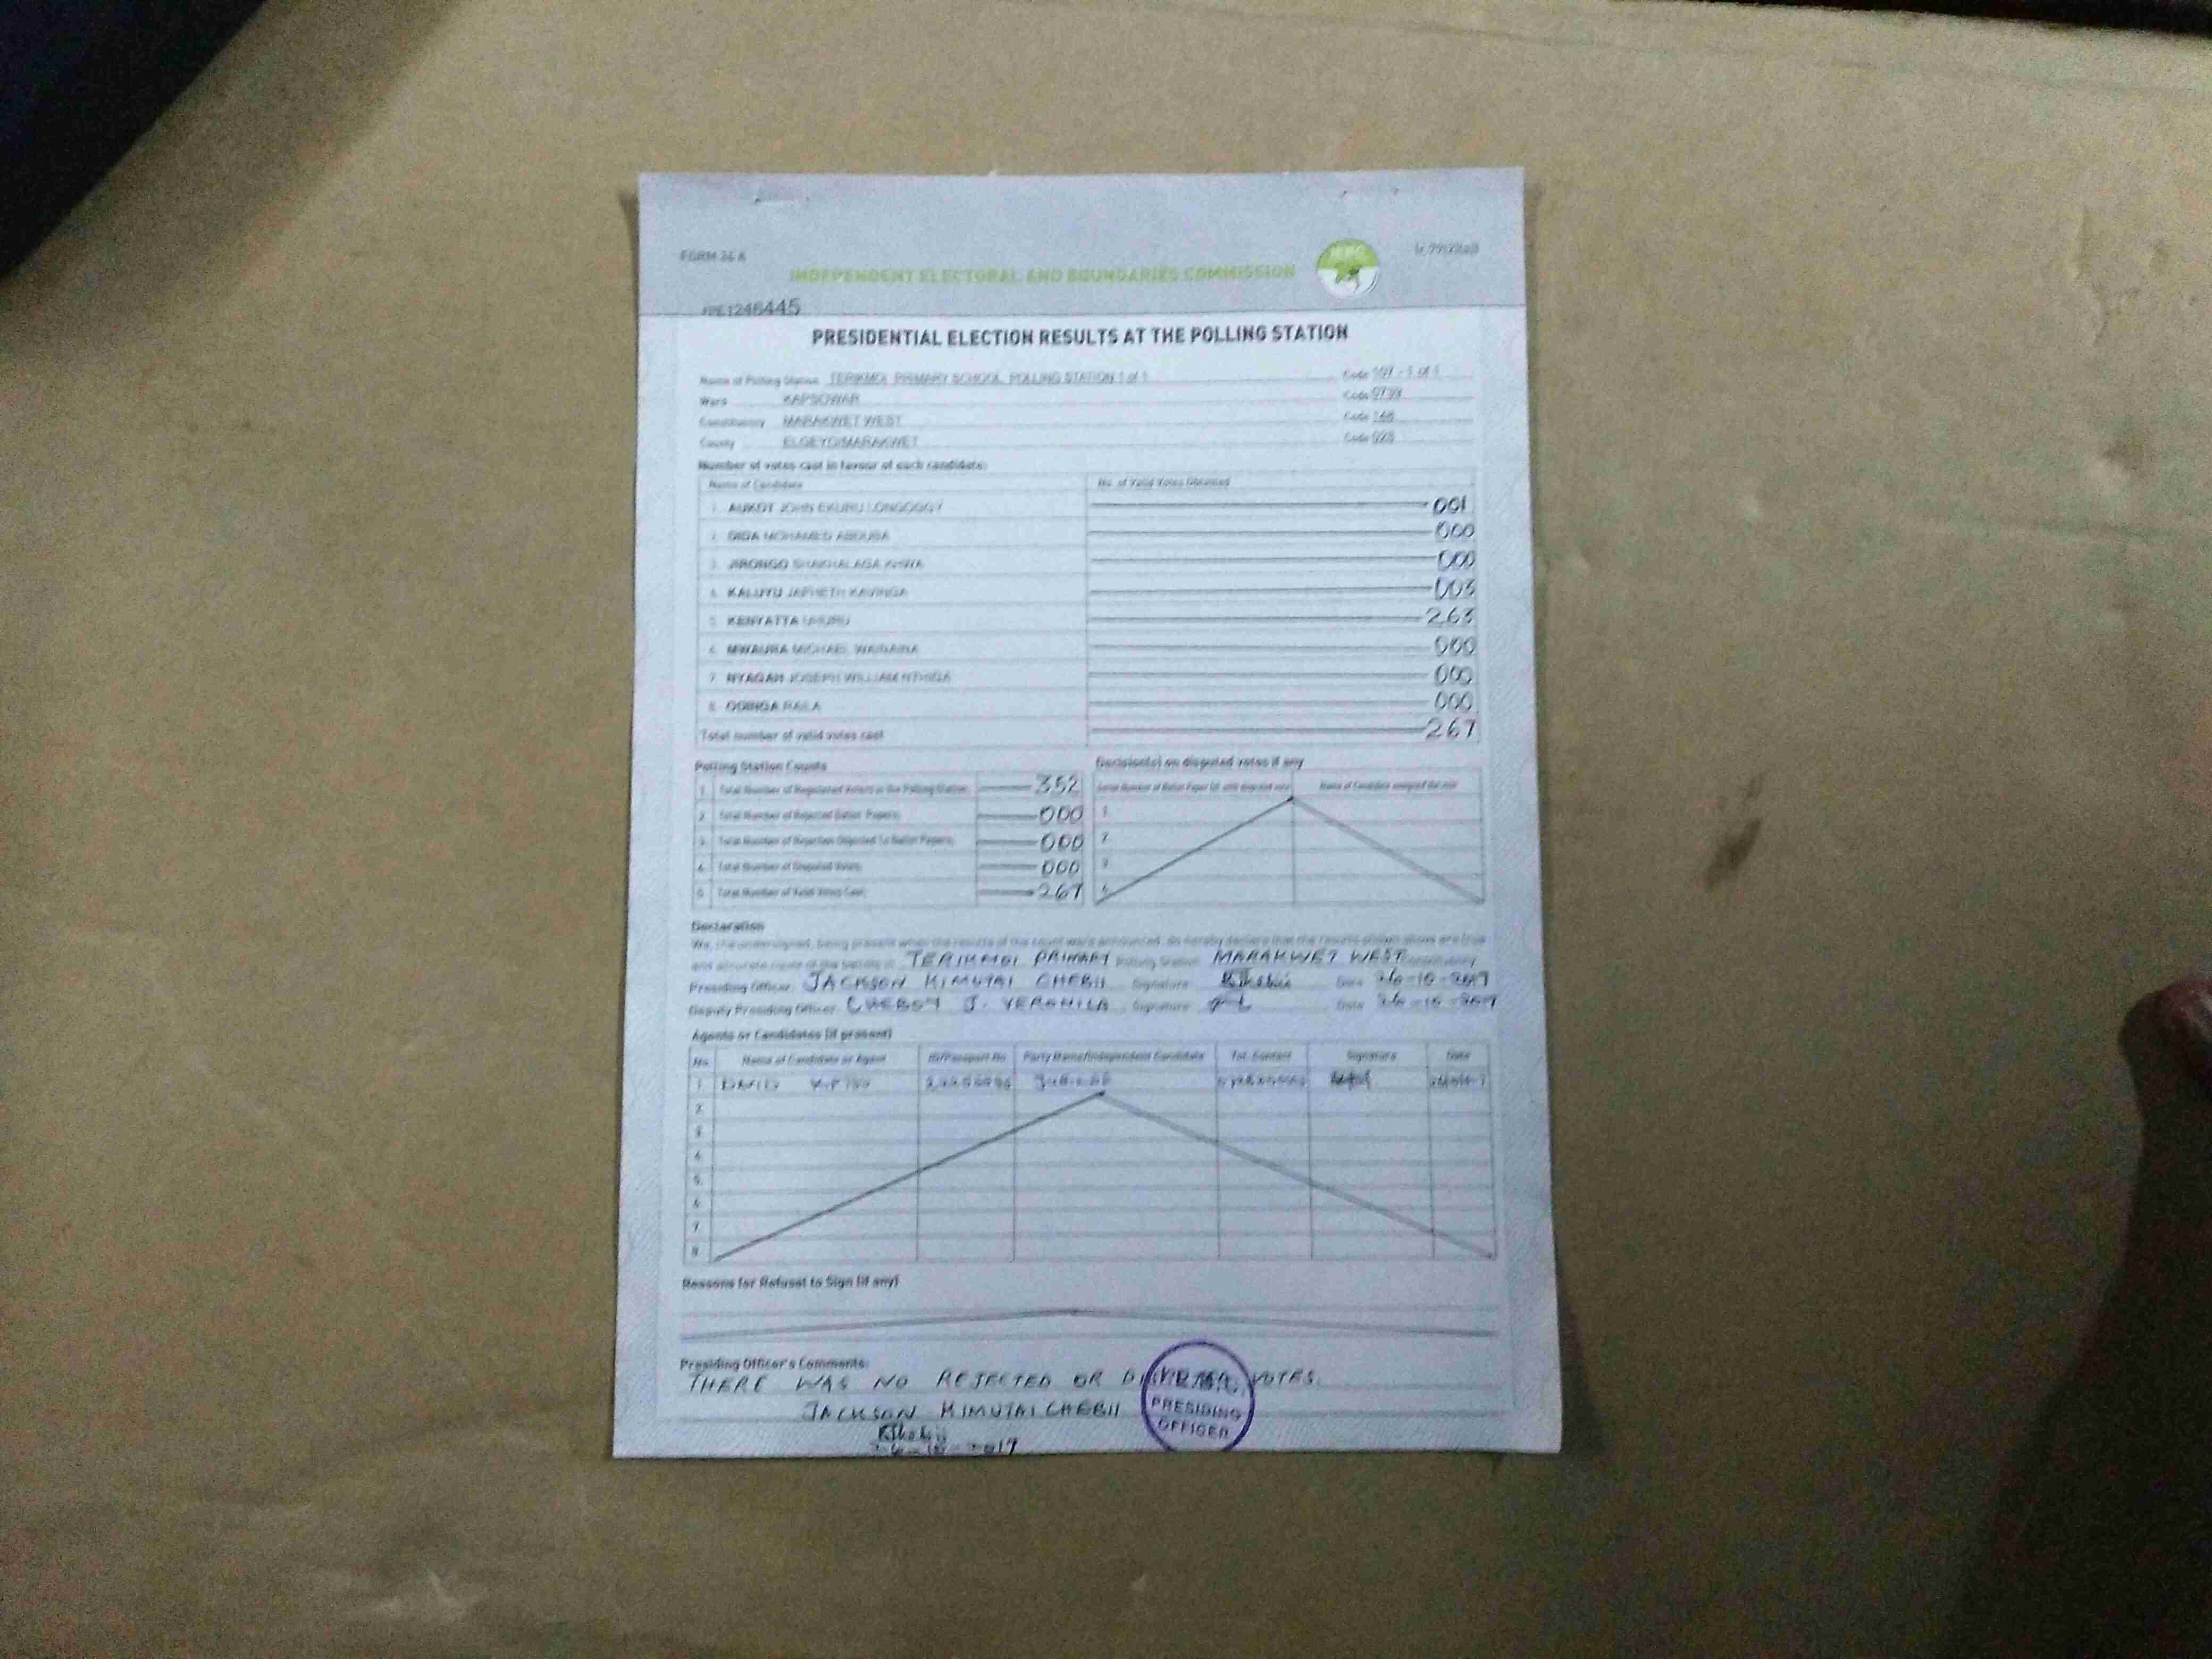 FORM 34 A
INDEPENDENT ELECTORAL AND BOUNDARIES COMMISSION
1246445
PRESIDENTIAL ELECTION RESULTS AT THE POLLING STATION
Name of Polling Station PRIMARY SCHOOL POLLING STATION 1 of 1 Code 107 - 1 of 1
Ward KAPSOWAR Code
Constituency MARAKWET WEST Code
County ELGEYO/MARAKWET Code 028
Number of votes cast in favour of each candidate:
Name of Candidate No. of Valid Votes Obtained
1. AUKOT JOHN EKURU LONGOGGY 001
2. DIDA MOHAMED ABDUBA 000
3. JIRONGO SHAKHALAGA KHWA 000
4. KALUYU JAPHETH KAVINGA 003
5. KENYATTA UHURU 263
6. MWAURA MICHAEL WAINAINA 000
7. NYAGAH JOSEPH WILLIAM NTHIGA 000
8. ODINGA RAILA 000
Total number of valid votes cast 267
Polling Station Counts
1. Total Number of Registered Voters in the Polling Station 352
2. Total Number of Rejected Ballot Papers 000
3. Total Number of Rejection Objected To Ballot Papers 000
4. Total Number of Disputed Votes 000
5. Total Number of Valid Votes Cast 267
Decision(s) on disputed votes if any
Serial Number of Ballot Paper (s) with disputed vote Name of Candidate assigned the vote
1.
2.
3
4.
Declaration
We, the undersigned, being present when the results of the count were announced, do hereby declare that the results shown above are true
and accurate count of the ballots in TERIKMOI PRIMARY Polling Station MARAKWET WEST Constituency
Presiding Officer: JACKSON KIMUTAI CHEBII Signature Date 26-10-2017
Deputy Presiding Officer: J. Signature Date 26-10-2017
Agents or Candidates (if present)
No. Name of Candidate or Agent ID/Passport No Party Name/Independent Candidate Tel. Contact Signature Date
1 DAVID
2.
3.
4.
5.
6.
7.
8
Reasons for Refusal to Sign (if any)
Presiding Officer's Comments:
THERE WAS NO REJECTED OR VOTES.
JACKSON KIMUTAI CHEBII
26-10-2017
PRESIDING
OFFICER